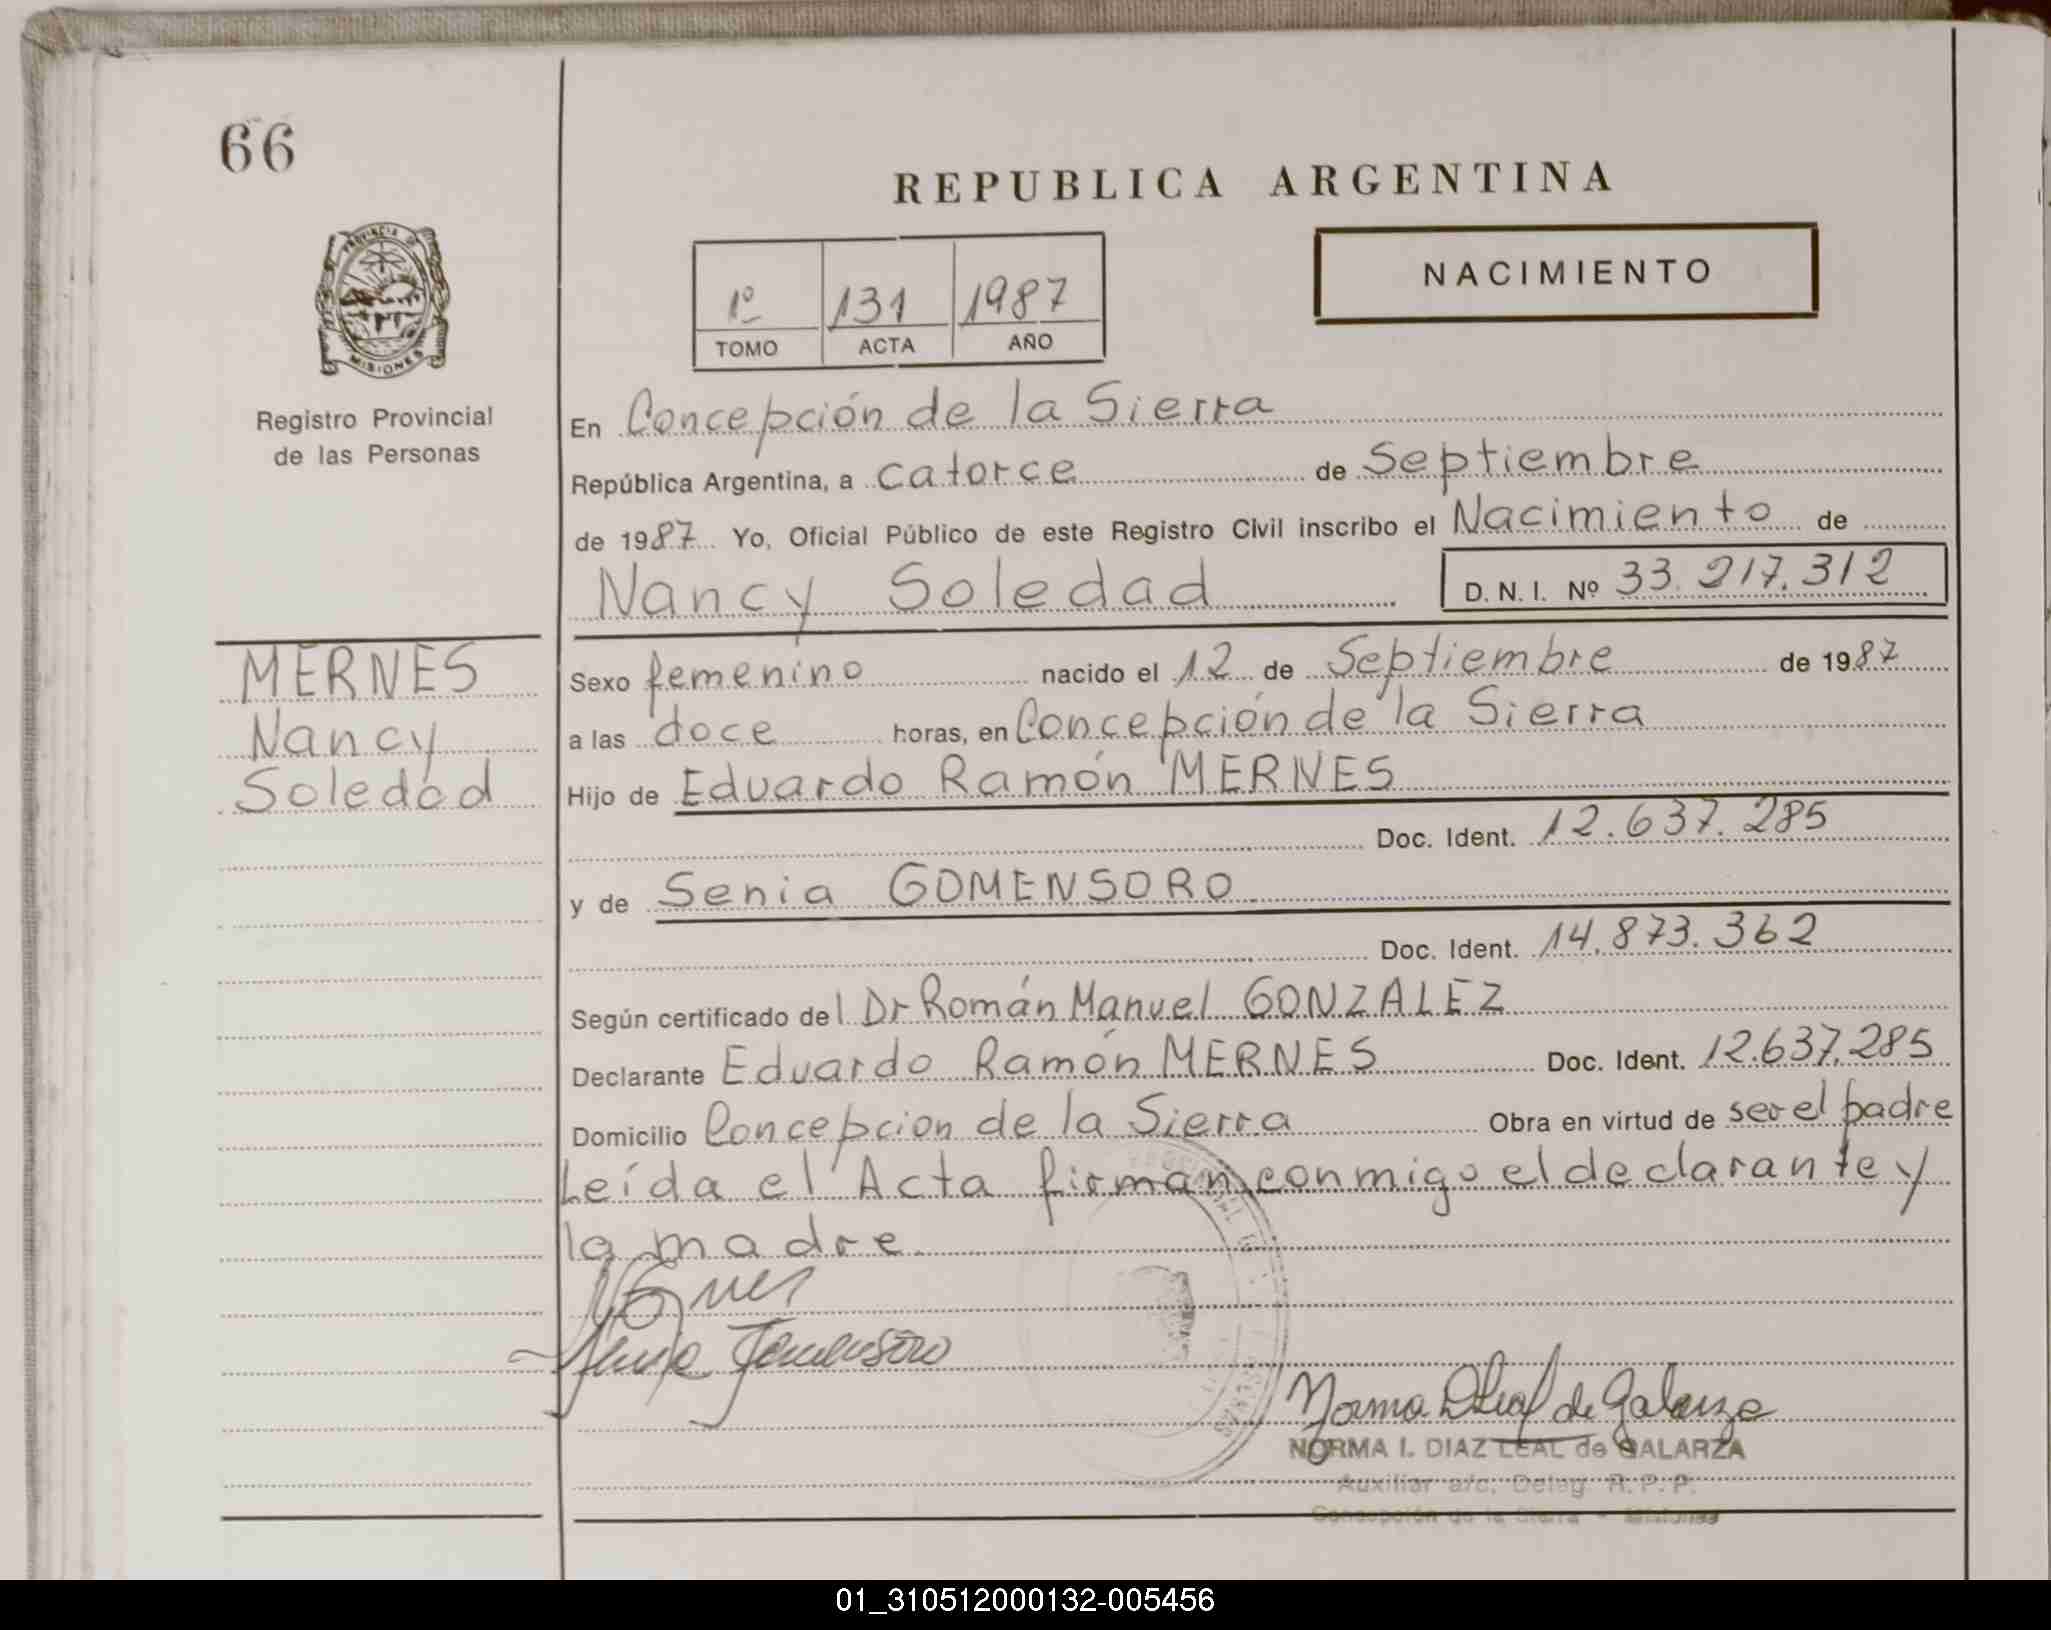 66
REPUBLICA ARGENTINA
PROVINCIA DE
MISIONES
Registro Provincial
de las Personas
1º 131 1987
TOMO ACTA AÑO
NACIMIENTO
En Concepción de la Sierra
República Argentina, a catorce de Septiembre
de 1987 Yo, Oficial Público de este Registro Civil inscribo el Nacimiento de
Nancy Soledad D. N. I. Nº 33.217.312
MERNES
Nancy
Soledad
Sexo femenino nacido el 12 de Septiembre de 1987
a las doce horas, en Concepción de la Sierra
Hijo de Eduardo Ramón MERNES
Doc. Ident. 12.637.285
y de Senia GOMENSORO
Doc. Ident. 14.873.362
Según certificado del Dr Román Manuel GONZALEZ
Declarante Eduardo Ramón MERNES Doc. Ident. 12.637.285
Domicilio Concepcion de la Sierra Obra en virtud de ser el padre
Leída el Acta firman conmigo el declarante y
la madre
Gomensoro
Norma D Leal de Galarza
NORMA I. DIAZ LEAL de GALARZA
Auxiliar a/c. Deleg. R. P. P.
Concepción de la Sierra - Misiones
01_310512000132-005456